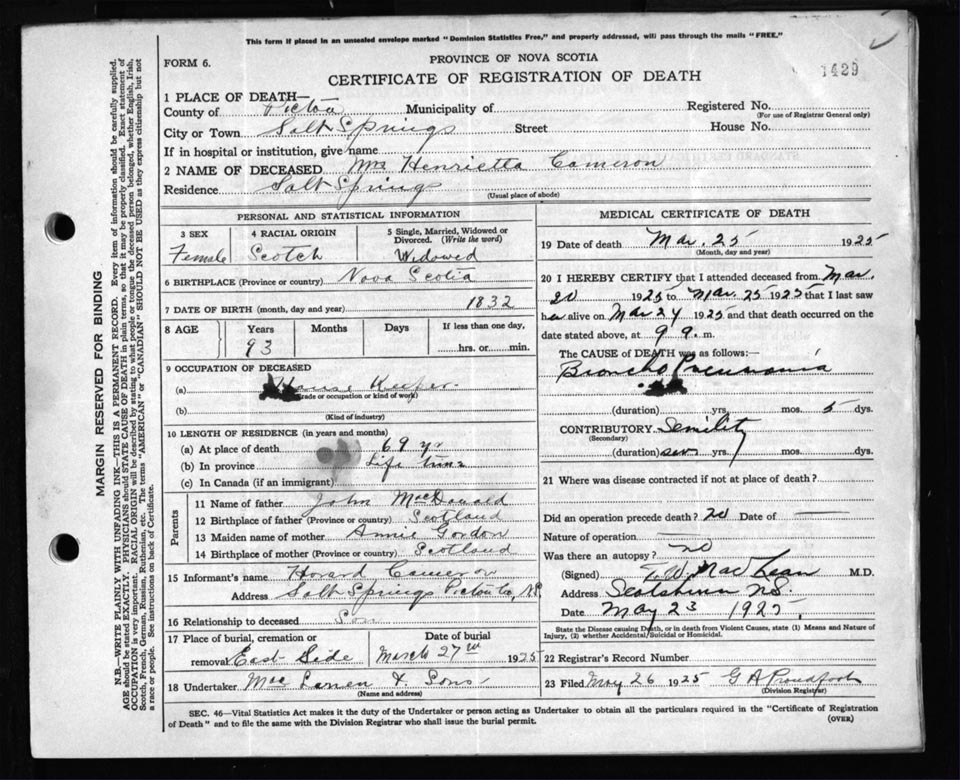 This form if placed in an unsealed envelope marked "Dominion Statistics Free," and properly addressed, will pass through the mails "FREE."
FORM 6.
PROVINCE OF NOVA SCOTIA
CERTIFICATE OF REGISTRATION OF DEATH
1429
1 PLACE OF DEATH—
County of Pictou Municipality of Registered No.
(For use of Registrar General only)
City or Town Salt Springs Street House No.
If in hospital or institution, give name
2 NAME OF DECEASED Mrs Henrietta Cameron
Residence Salt Springs
(Usual place of abode)
PERSONAL AND STATISTICAL INFORMATION
3 SEX 4 RACIAL ORIGIN 5 Single, Married, Widowed or Divorced. (Write the word)
Female Scotch Widowed
6 BIRTHPLACE (Province or country) Nova Scotia
7 DATE OF BIRTH (month, day and year) 1832
8 AGE Years Months Days If less than one day,
93 hrs. or min.
9 OCCUPATION OF DECEASED
(a) House Keeper
(Trade or occupation or kind of work)
(b)
(Kind of industry)
10 LENGTH OF RESIDENCE (in years and months)
(a) At place of death 69 yr
(b) In province Life time
(c) In Canada (if an immigrant)
Parents
11 Name of father John MacDonald
12 Birthplace of father (Province or country) Scotland
13 Maiden name of mother Annie Gordon
14 Birthplace of mother (Province or country) Scotland
15 Informant's name Howard Cameron
Address Salt Springs Pictou Co, N.S.
16 Relationship to deceased Son
17 Place of burial, cremation or removal East Side
Date of burial March 27 1925
18 Undertaker MacLaren & Sons
(Name and address)
MEDICAL CERTIFICATE OF DEATH
19 Date of death Mar. 25 1925
(Month, day and year)
20 I HEREBY CERTIFY that I attended deceased from Mar.
20 1925 to Mar. 25 1925 that I last saw
her alive on Mar 24 1925 and that death occurred on the
date stated above, at 9 a. m.
The CAUSE of DEATH was as follows:—
Broncho Pneumonia
(duration) yrs. mos. 5 dys.
CONTRIBUTORY Senility
(Secondary)
(duration) yrs. mos. dys.
21 Where was disease contracted if not at place of death?
Did an operation precede death? no Date of —
Nature of operation —
Was there an autopsy? no
(Signed) T. W. MacLean M.D.
Address Scotsburn N.S.
Date May 23 1925
State the Disease causing Death, or in death from Violent Causes, state (1) Means and Nature of Injury, (2) whether Accidental, Suicidal or Homicidal.
22 Registrar's Record Number
23 Filed May 26 1925 G A Proudfoot
(Division Registrar)
SEC. 46—Vital Statistics Act makes it the duty of the Undertaker or person acting as Undertaker to obtain all the particulars required in the "Certificate of Registration
of Death" and to file the same with the Division Registrar who shall issue the burial permit.
(OVER)
MARGIN RESERVED FOR BINDING
N.B.—WRITE PLAINLY, WITH UNFADING INK—THIS IS A PERMANENT RECORD. Every item of information should be carefully supplied.
AGE should be stated EXACTLY. PHYSICIANS should STATE CAUSE OF DEATH in plain terms, so that it may be properly classified. Exact statement of
OCCUPATION is very important. RACIAL ORIGIN will be described by stating to what people or tongue the deceased person belonged, whether English, Irish,
Scotch, French, German, Russian, Ruthenian, etc. The terms "AMERICAN" or "CANADIAN" SHOULD NOT BE USED as they express citizenship but not
a race or people. See instructions on back of Certificate.